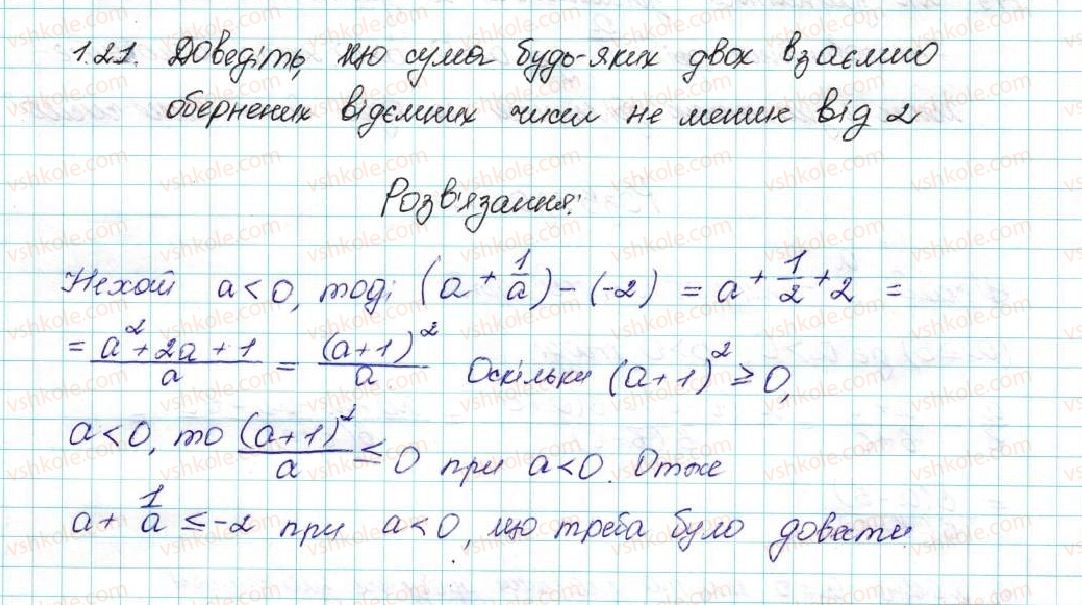 1.21. Доведіть, що сума будь-яких двох взаємно
обернених відємних чисел не менше від 2
Розв'язання:
Нехай a < 0, тоді (a + 1/a) - (-2) = a + 1/2 + 2 =
= (a² + 2a + 1)/a = (a+1)²/a Оскільки (a+1)² ≥ 0,
a < 0, то (a+1)²/a ≤ 0 при a < 0. Отже
a + 1/a ≤ -2 при a < 0, що треба було довести